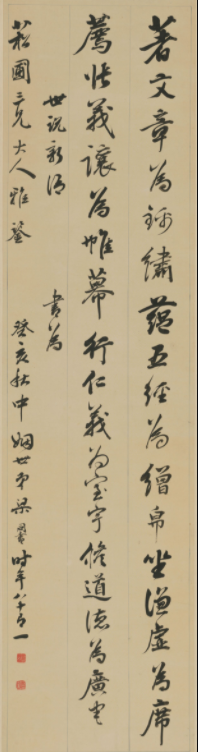 著文章為錦繡蘊五經為繒帛坐謙虛為席
薦張義讓為帷幕行仁義為室宇修道德為廣宅
世說新語 書為
菘圃三兄大人雅鑒 癸亥秋中 姻世弟梁同書時年八十有一